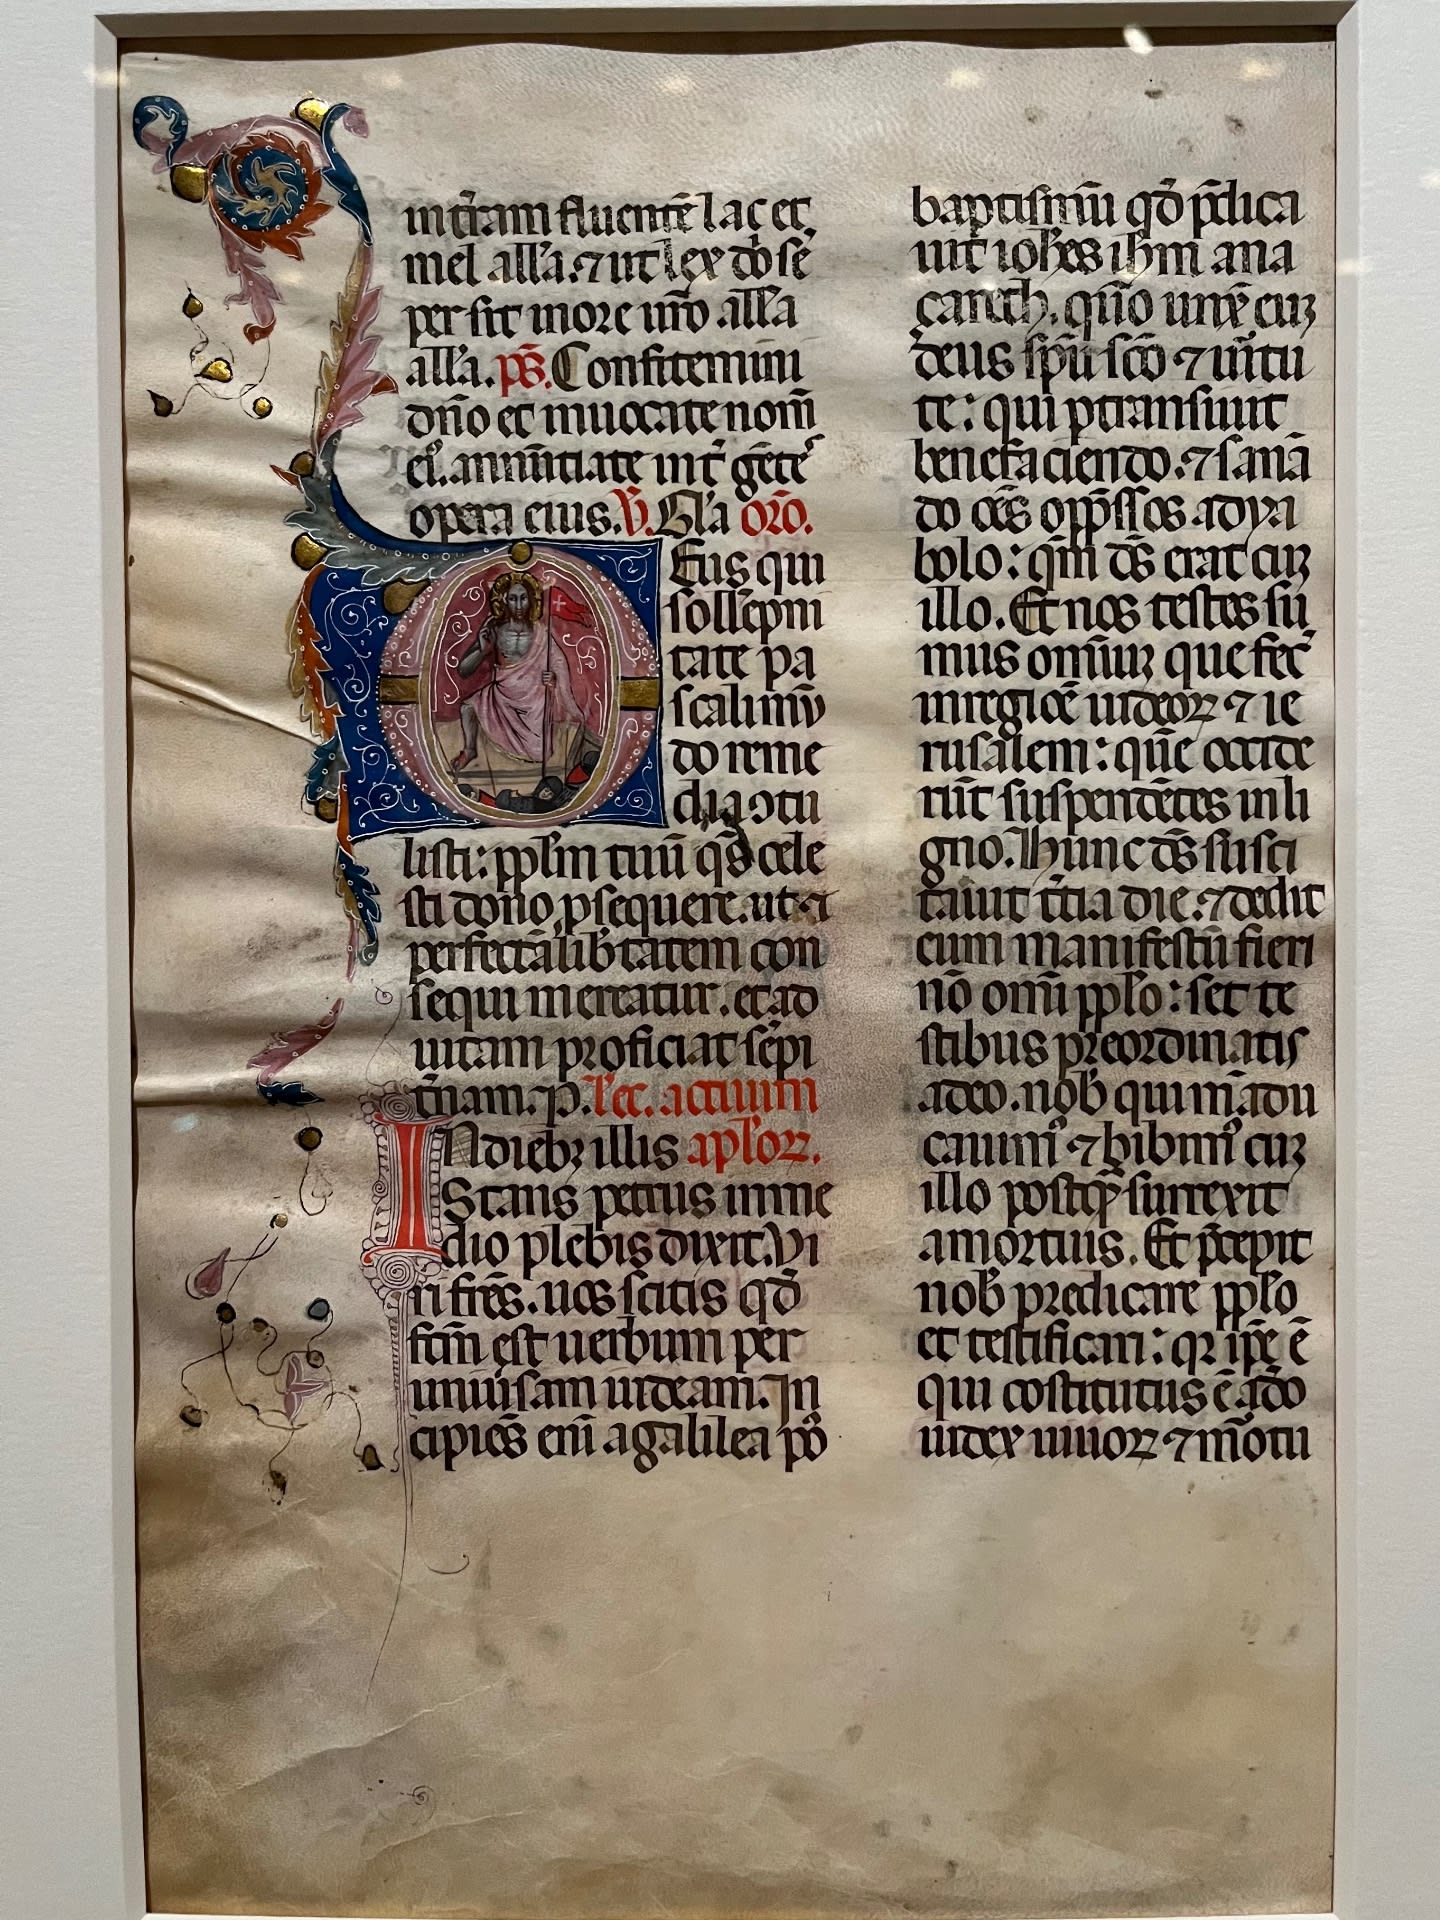 int̄ram fluentē lac et
mel all'a. ⁊ ut lex dn̄i sē
per sit in ore ur̄o all'a
all'a. ps̄. Confitemini
dn̄o et inuocate nom̄
ei᷒. annūtiate int̄ gēte᷒
opera eius. V̄. Gl'a orō.
Eus qui
sollēpni
tate pa
scali mū
do reme
dia ↄtu
listi: pplm̄ tuū qs̄ cele
sti dono ꝓsequere. ut ⁊
perfectā lib̄tatem con
sequi mereatur. et ad
uitam proficiat sēpi
t̄nam. p. Lēc. actuum
IN dieb; illis apl'oꝝ.
Stans petrus in me
dio plebis dixit. Vi
ri frēs. uos scitis qd̄
fc̄m est uerbum per
uniūsam iudeam. In
cipiēs enī a galilea pꝰ
baptismū qd̄ p̄dica
uit ioh̄es ih̄m a na
çareth. quō unx̄ eūꝫ
deus sp̄ū sc̄o ⁊ uir̄tu
te: qui ptransiuit
benefaciendo. ⁊ sanā
do oēs opp̄ssos a dya
bolo: qm̄ ds̄ erat cūꝫ
illo. Et nos testes su
mus omniūꝫ que fec̄
in regiōe iudeoꝝ ⁊ ie
rusalem: quē occide
rūt suspendētes in li
gno. Hunc ds̄ susci
tauit t̄tia die. ⁊ dedit
eum manifestū fieri
nō omī pplo: set te
stibus preordinatis
a deo. nob̄ qui mādu
cauimꝰ ⁊ bibimꝰ cuꝫ
illo postq̄ surrexit
a mortuis. Et p̄cepit
nob̄ predicare pplo
et testificari: qꝛ ip̄e ē
qui cōstitutus ē a dō
iudex uiuoꝝ ⁊ mōtu